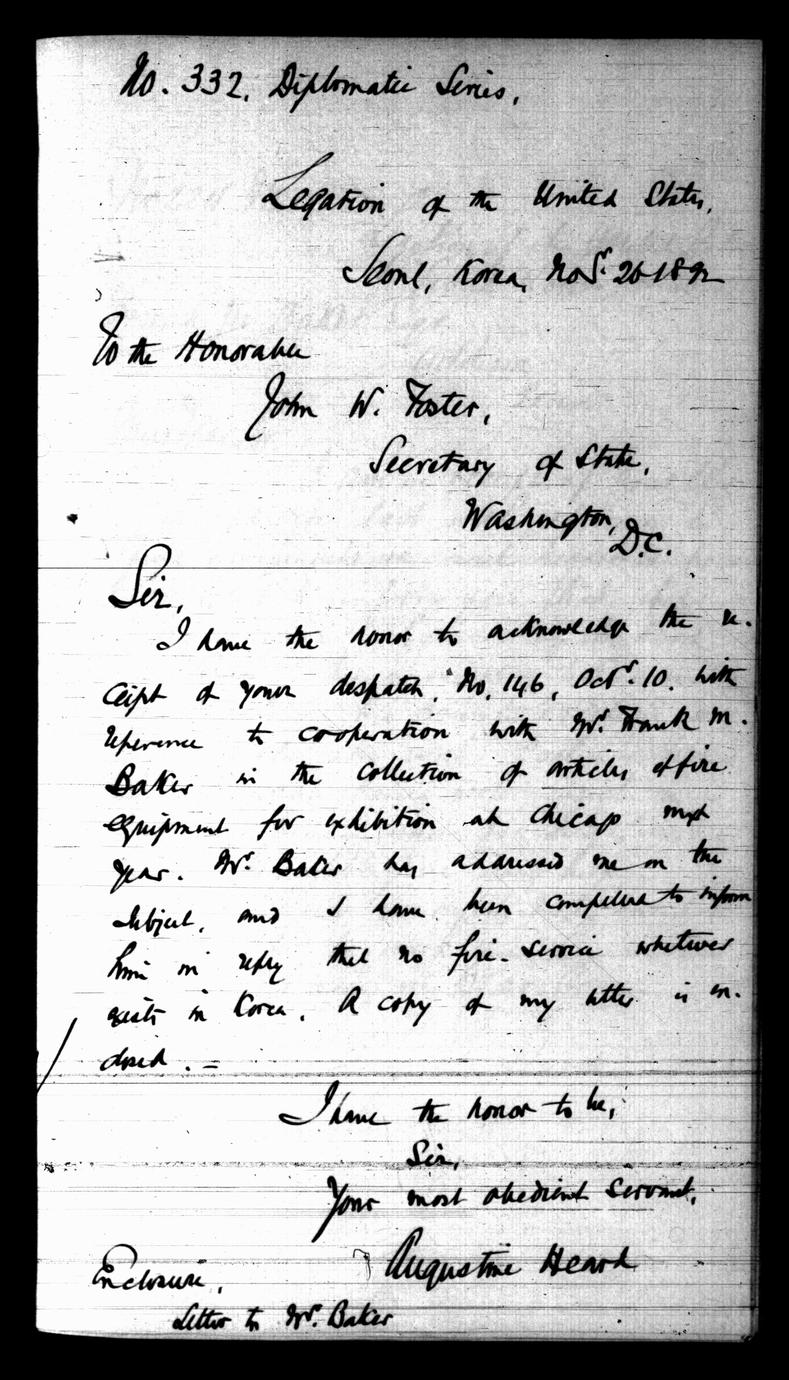 No. 332. Diplomatic Series.
Legation of the United States,
Seoul, Korea, Nov. 26 1892
To the Honorable
John W. Foster,
Secretary of State,
Washington,
D.C.
Sir,
I have the honor to acknowledge the re-
ceipt of your despatch, No. 146, Octr. 10. with
reference to cooperation with Mr. Frank M.
Baker in the collection of articles of fire
equipment for exhibition at Chicago next
year. Mr. Baker has addressed me on the
subject, and I have been compelled to inform
him in reply that no fire-service whatever
exists in Korea. A copy of my letter is en-
closed. =
I have the honor to be,
Sir,
Your most obedient servant,
Augustine Heard
Enclosure,
Letter to Mr. Baker